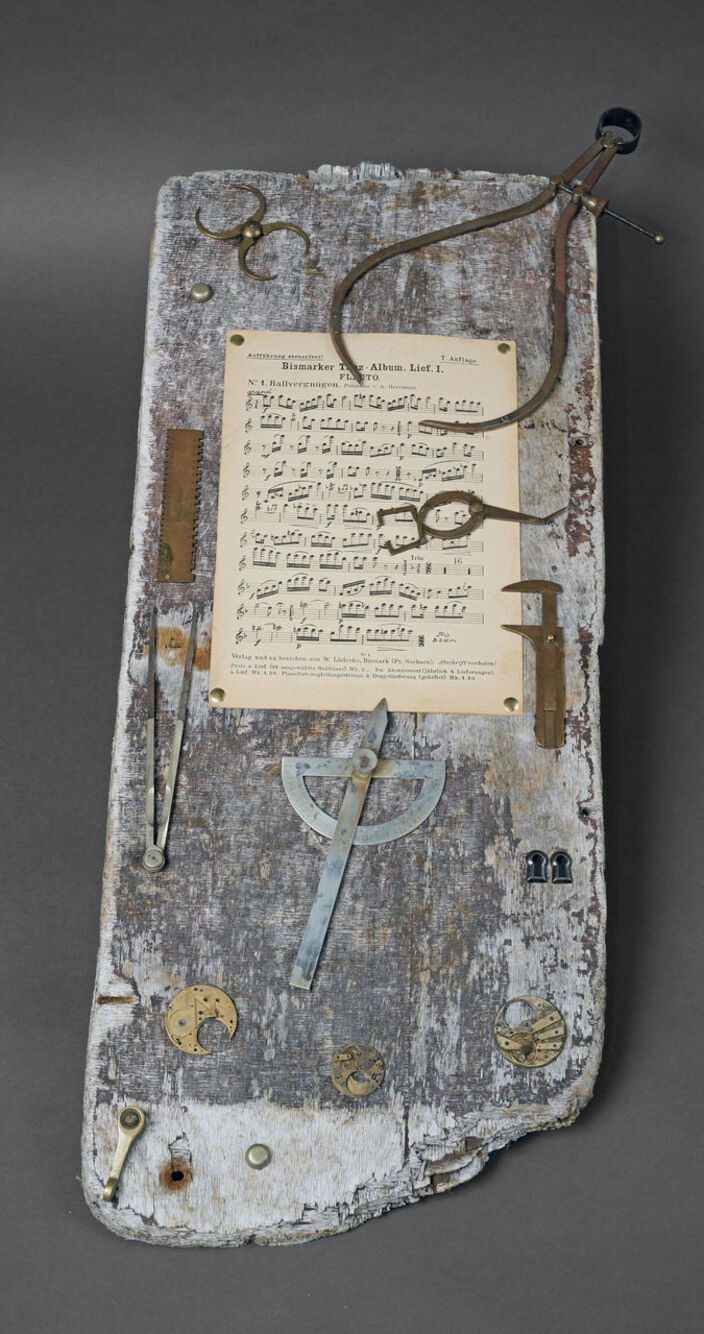 Aufführung steuerfrei! 7. Auflage.
Bismarker Album. Lief. I.
No. 1. Ballvergnügen. Polonaise v. A. Herrmann.
Trio
16
Verlag und zu beziehen von W. Lüdecke, Bismark (Pr. Sachsen). Abschrift verboten!
Preis à Lief. (12 ausgewählte Balltänze) Mk. Im Abonnement (jährlich 4 Lieferungen)
à Lief. Mk. 1,50. Pianofortebegleitungsstimme à Doppellieferung (geheftet) Mk. 1,50